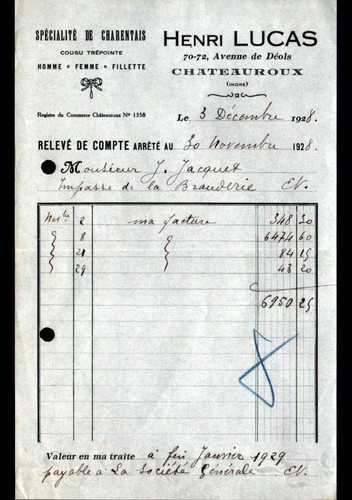 SPÉCIALITÉ DE CHARENTAIS
COUSU TRÉPOINTE
HOMME • FEMME • FILLETTE
HENRI LUCAS
70-72, Avenue de Déols
CHATEAUROUX
(INDRE)
Registre du Commerce Châteauroux N° 1358
Le 3 Décembre 1928.
RELEVÉ DE COMPTE ARRÊTÉ AU 30 Novembre 1928.
Monsieur J. Jacquet
Impasse de la Brauderie
2 ma facture 348 20
8 6474 60
21 84 25
29 43 20
6950 25
Valeur en ma traite à fin Janvier 1929
payable à La Société Générale